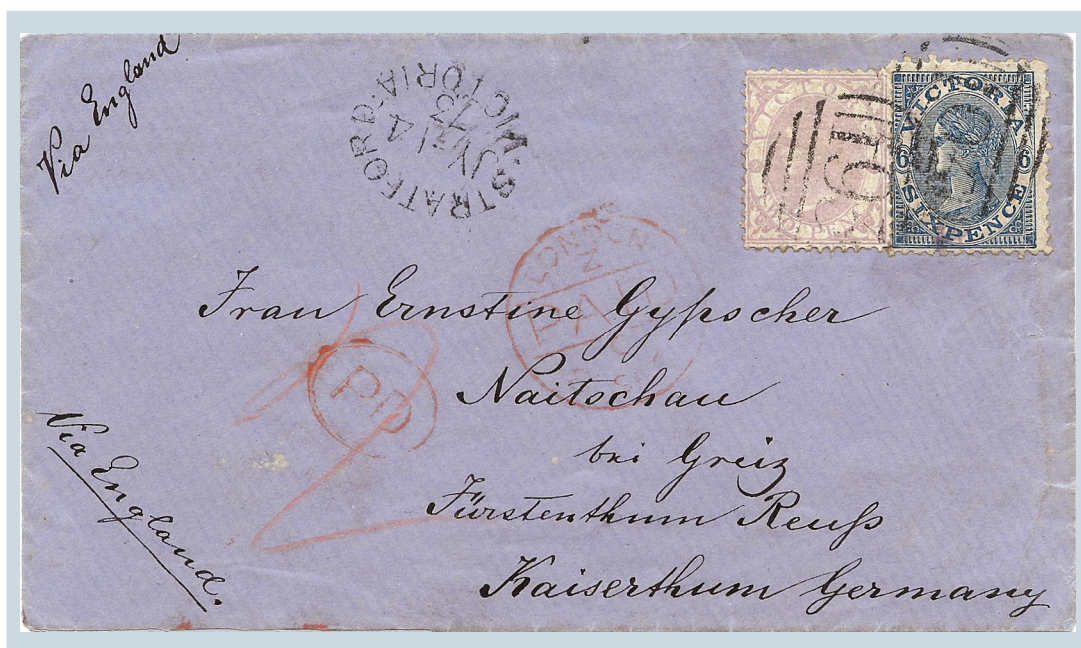 Via England
STRATFORD
VICTORIA
JY 14
73
VICTORIA
6 6
SIXPENCE
LONDON
Z
PAID
Frau Ernstine Gypscher
PD
Naitschau
bei Greiz
Via England.
Fürstenthum Reuß
Kaiserthum Germany